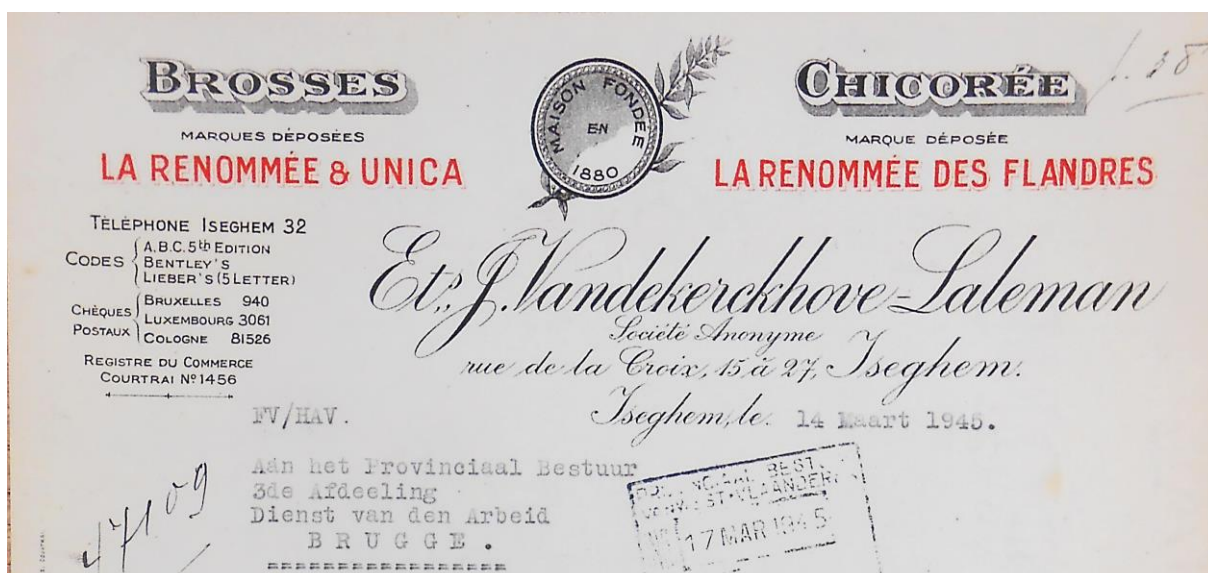 BROSSES
MARQUES DÉPOSÉES
LA RENOMMÉE & UNICA
MAISON FONDÉE
EN
1880
CHICORÉE
MARQUE DÉPOSÉE
LA RENOMMÉE DES FLANDRES
TÉLÉPHONE ISEGHEM 32
CODES
A.B.C. 5th EDITION
BENTLEY'S
LIEBER'S (5 LETTER)
CHÈQUES POSTAUX
BRUXELLES 940
LUXEMBOURG 3061
COLOGNE 81526
REGISTRE DU COMMERCE
COURTRAI Nº 1456
Ets. J. Vandekerckhove-Laleman
Société Anonyme
rue de la Croix, 15 à 27, Iseghem.
Iseghem, le. 14 Maart 1945.
FV/HAV.
Aan het Provinciaal Bestuur
3de Afdeeling
Dienst van den Arbeid
BRUGGE.
47109
BEST.
WEST-VLAANDEREN
17 MAR 1945